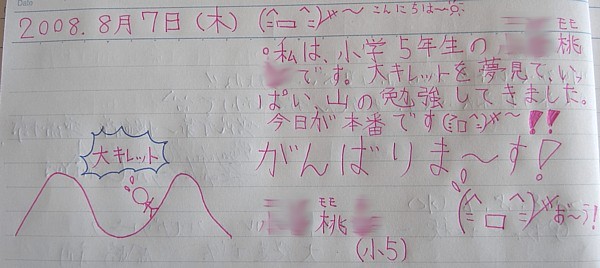 Date
2008.8月7日(木) (^ロ^)〃~ こんにちは~
私は、小学5年生の 桃
モモ
です。大キレットを夢見て、いっ
ぱい、山の勉強してきました。
今日が本番です(^ロ^)〃~!!
がんばりま~す!
大キレット
モモ
桃
(^ロ^)〃 お~う!
(小5)